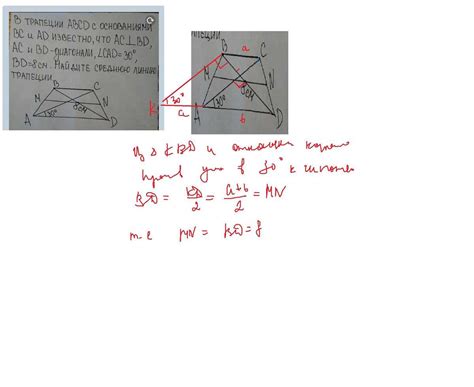 В ТРАПЕЦИИ ABCD С ОСНОВАНИЯМИ
BC И AD ИЗВЕСТНО, ЧТО AC⊥BD,
AC И BD - ДИАГОНАЛИ, ∠CAD=30°,
BD=8СМ. НАЙДИТЕ СРЕДНЮЮ ЛИНИЮ
ТРАПЕЦИИ.
B C
M N
8см
A 30° D
ПЕЦИИ
B a C
M N
K 30° 8см
a A 30° b D
Из Δ KBD и
против угла в 30° к
BD = KD/2 = a+b/2 = MN
т.е MN = BD = 8